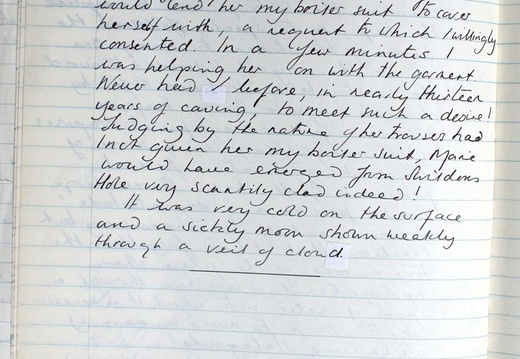 would lend her my boiler suit to cover
herself with, a request to which I willingly
consented. In a few minutes I
was helping her on with the garment.
Never had I before, in nearly thirteen
years of caving, to meet such a desire!
Judging by the nature of her trousers had
I not given her my boiler suit, Marie
would have emerged from Swildons
Hole very scantily clad indeed!
It was very cold on the surface
and a sickly moon shown weakly
through a veil of cloud.